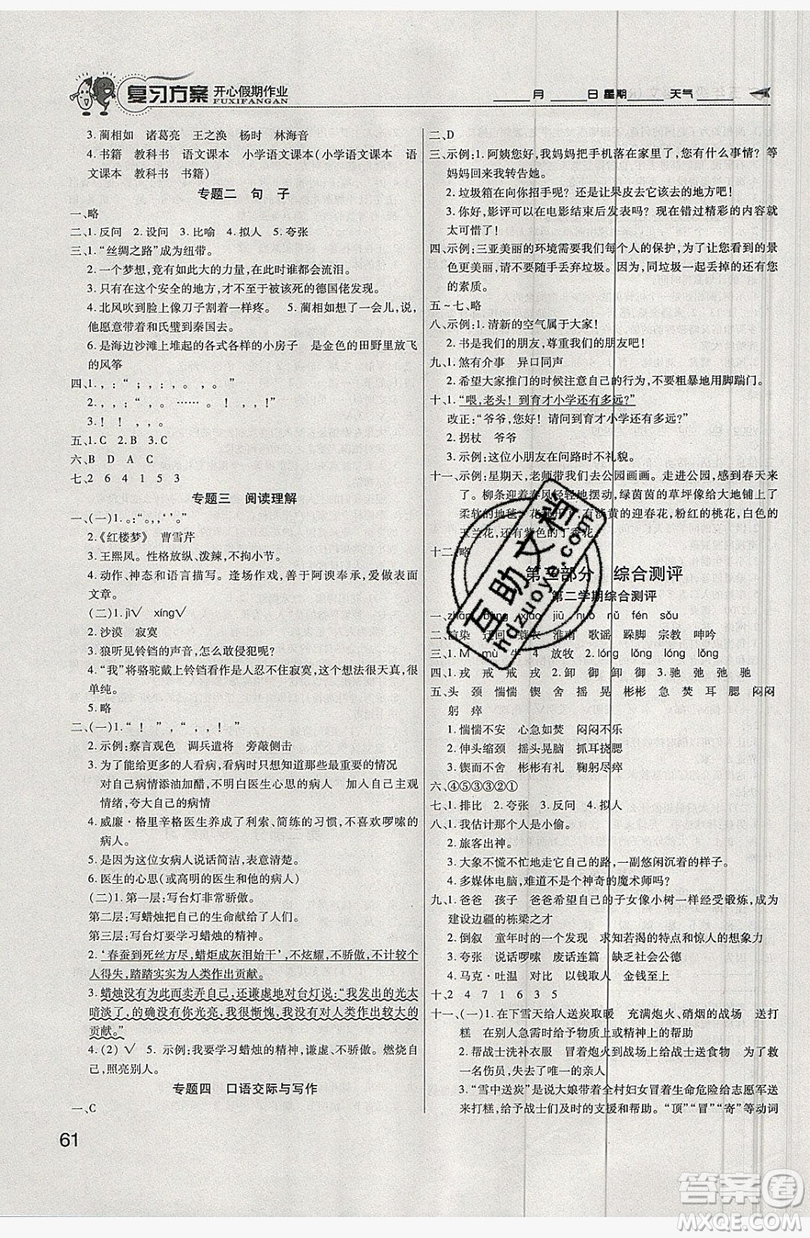 复习方案 开心假期作业
FUXIFANGAN
月 日 星期 天气
3. 蔺相如 诸葛亮 王之涣 杨时 林海音
4. 书籍 教科书 语文课本 小学语文课本(小学语文课本 语
文课本 教科书 书籍)
专题二 句 子
一、略
二、1. 反问 2. 设问 3. 比喻 4. 拟人 5. 夸张
三、1.“丝绸之路”成为纽带。
2. 一个梦想,竟有如此大的力量,在此时谁都会流泪。
3. 只有在这个安全的地方,才不至于被该死的德国佬发现。
4. 北风吹到脸上像刀子割一样疼。 5. 蔺相如想了一会儿,说,
他愿意带着和氏璧到秦国去。
6. 是海边沙滩上堆起的各式各样的小房子 是金色的田野里放飞
的风筝
四、1. , :“ ; , , 。”
2. :“ , ! , , 。”
3. ! ! , , 。
五、1. C 2. B 3. C
六、B D A C
七、2 6 4 1 5 3
专题三 阅读理解
一、(一)1. “。” , ‘ ’ 。
2.《红楼梦》 曹雪芹
3. 王熙凤。性格放纵、泼辣,不拘小节。
4. 动作、神态和语言描写。逢场作戏、善于阿谀奉承、能言善辩。
(二)1. jì√ xíng√
2. 沙漠 寂寞
3. 狼听见铃铛的响声,怎么敢侵犯我们?
4.“我”将骆驼戴上铃铛看作是人忍不住很寂寞,这种想法真实,很
单纯。
5. 略
二、(一)1. “ ! ” , “ , , ! ”
2. 示例:察言观色 调兵遣将 旁敲侧击
3. 为了能有更多的时间看病和只想知道那些最重要的情况
对自己病情添油加醋,不相干的病人 加入自己的主观
情绪,夸大自己的病情
4. 威廉·格里辛格医生养成了利索、简练的习惯,不喜欢啰嗦的
病人。
5. 是因为这位女病人说话简洁,表达意思清楚。
6. 医生的心思(或高明的医生与聪明的病人)
(二)1. 第一层:写台灯非常骄傲。
第二层:写蜡烛把自己的生命献给了人类。
第三层:写台灯学习蜡烛的精神。
2.‘春蚕到死丝方尽,蜡炬成灰泪始干’,不炫耀,不骄傲,不计较个
人得失,踏踏实实为人类作出贡献。
3. 蜡烛没有为此而满足,还谦虚地对台灯说:“我发出的光太
暗淡了,亮度远远不如你,我很惭愧,我没有对人类作出很大的
贡献。”
4. (2)√ 5. 示例:我要学习蜡烛的精神,谦虚、不骄傲。燃烧自
己,照亮别人。
专题四 口语交际与写作
一、C
61
二、D
三、示例:1. 阿姨您好,我妈妈把手机落在家里了,您有什么事情? 等
妈妈回来我转告她。
2. 垃圾箱在向你招手呢? 这里是让果皮去的地方吗!
3. 你好,影评可以在电影结束后发表吗? 现在错过精彩的内容就
太可惜了!
四、示例:三亚美丽的环境需要我们每个人的保护,为了我们美丽的景
色更加迷人,请不要随手丢弃垃圾。因为,同垃圾一起丢掉的还有您
的素质。
五~七、略
八、示例:1. 清新的空气属于大家!
2. 书是我们的朋友,尊重我们的朋友吧!
九、1. 煞有介事 异口同声
2. 希望大家推门的时候注意自己的形象,不要粗暴地用脚踹门。
十、1.“喂,老头! 到育才小学还有多远?”
改正:“爷爷,您好! 请问到育才小学还有多远?”
2. 拐杖 爷爷
3. 示例:这位小朋友在问路时不礼貌。
十一、示例:星期天,老师带我们去公园画画。走进公园,看到春天来
了。柳条迎着春风轻轻地摆动,绿茵茵的草坪像给大地铺了
柔软的地毯。花园里有黄黄的迎春花,粉红的桃花,白色的
玉兰花,紫色的丁香花。
十二、略
第三部分 综合测评
第二学期综合测评
二、渲染 迂回 蓑衣 淮南 歌谣 跺脚 宗教 呻吟
三、1. M mù 牛 4 放牧 2. lóng lǒng lǒng
四、戎 戒 戒 戎 2. 卸 御 御 卸 3. 驰 弛 弛 驰
五、头 颈 惴惴 锲 舍 摇 晃 彬彬 急 焚 耳 腮 闷闷
躬 瘁
1. 惴惴不安 心急如焚 闷闷不乐
2. 伸头缩颈 摇头晃脑 抓耳挠腮
3. 锲而不舍 彬彬有礼 鞠躬尽瘁
六、④⑤③③②①
七、1. 排比 2. 夸张 3. 反问 4. 拟人
八、1. 我估计那个人是小偷。
2. 旅客出神。
3. 大象慌不忙地走了过来,一副悠闲沉着的样子。
4. 多媒体电脑,难道不是个神奇的魔术师吗?
九、1. 爸爸 孩子 爸爸希望自己的子女像小树一样经受锻炼,成为
建设边疆的栋梁之才
2. 倒叙 童年时的一个发现 求知若渴的特点和惊人的想象力
3. 夸张 说话啰嗦 废话连篇 缺乏社会公德
4. 马克·吐温 对比 以钱取人 金钱至上
十、2 4 7 1 6 3 5
十一、(一)1. 在下雪天给人送炭取暖 充满炮火、硝烟的战场 送打
糕 在别人急需时给予物质上或精神上的帮助
2. 帮战士洗补衣服 冒着炮火到阵地救护伤员 冒着生命危险
送打糕
3.“雪中送炭”是说大娘带着全村妇女冒着生命危险给志愿军送
来打糕,给予战士们及时的支援和帮助。“顶”“冒”“寄”等动词
互助文档
hdzuoye.com
答案圈
MXQE.COM